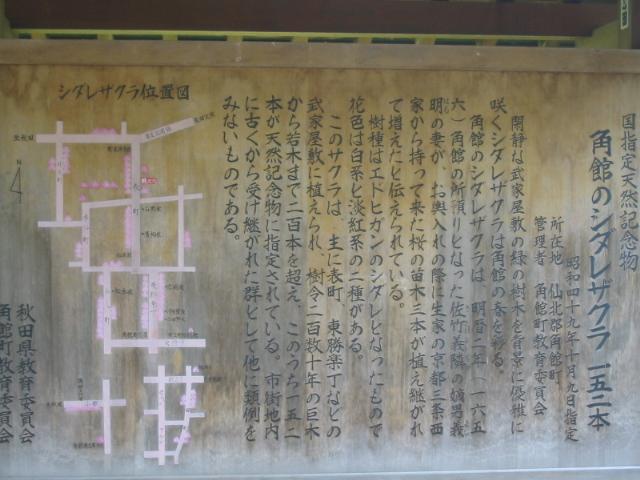 国指定天然記念物
角館のシダレザクラ 一五二本
昭和四十九年十月九日指定
所在地 仙北郡角館町
管理者 角館町教育委員会
閑静な武家屋敷の緑の樹木を背景に優雅に
咲くシダレザクラは角館の春を彩る。
角館のシダレザクラは、明暦二年(一六五
六)角館の所預りとなった佐竹義隣の嫡男義
明の妻が、お輿入れの際に生家の京都三条西
家から持って来た桜の苗木三本が植え継がれ
て増えたと伝えられている。
樹種はエドヒガンのシダレとなったもので
花色は白系と淡紅系の二種がある。
このサクラは、主に表町、東勝楽丁などの
武家屋敷に植えられ、樹令二百数十年の巨木
から若木まで二百本を超え、このうち一五二
本が天然記念物に指定されている。市街地内
に古くから受け継がれた群として他に類例を
みないものである。
シダレザクラ位置図
N
秋田県教育委員会
角館町教育委員会